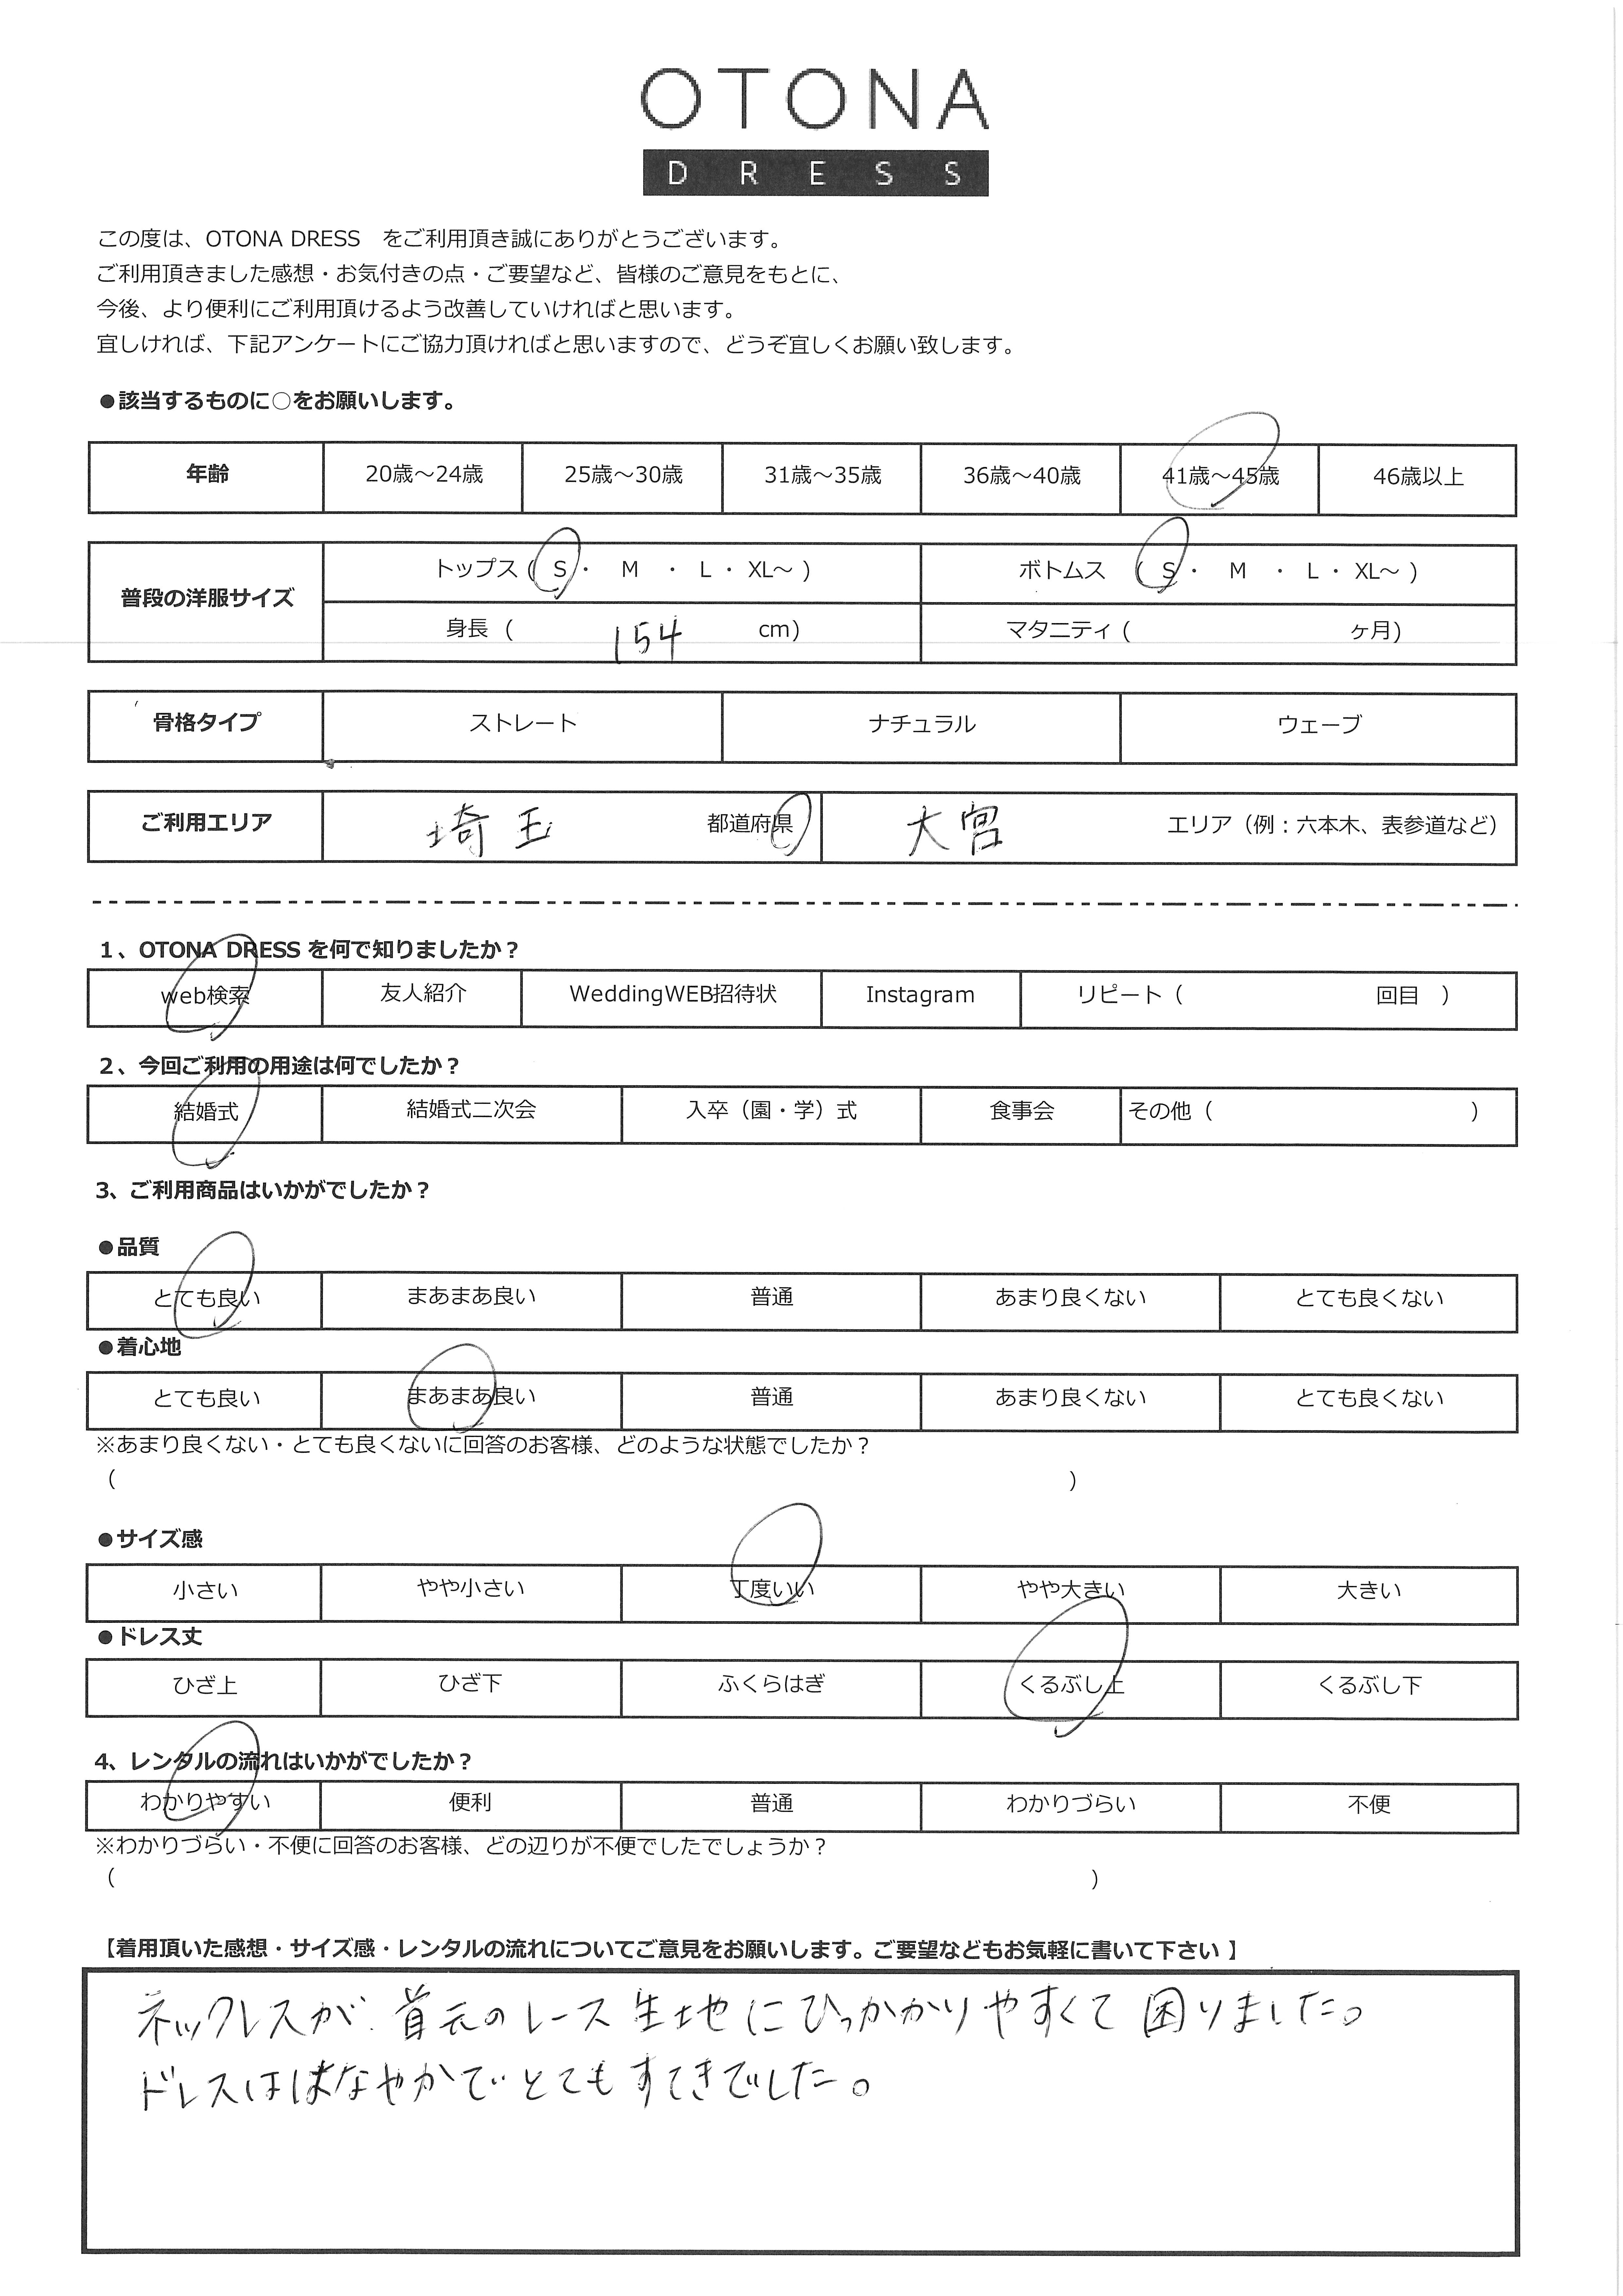 OTONA
DRESS
この度は、OTONA DRESS　をご利用頂き誠にありがとうございます。
ご利用頂きました感想・お気付きの点・ご要望など、皆様のご意見をもとに、
今後、より便利にご利用頂けるよう改善していければと思います。
宜しければ、下記アンケートにご協力頂ければと思いますので、どうぞ宜しくお願い致します。
●該当するものに○をお願いします。
年齢 20歳～24歳 25歳～30歳 31歳～35歳 36歳～40歳 41歳～45歳 46歳以上
普段の洋服サイズ トップス ( S ・ M ・ L ・ XL～ ) ボトムス ( S ・ M ・ L ・ XL～ )
身長 ( 154 cm) マタニティ ( ヶ月)
骨格タイプ ストレート ナチュラル ウェーブ
ご利用エリア 埼玉 都道府県 大宮 エリア（例：六本木、表参道など）
1、OTONA DRESS を何で知りましたか？
web検索 友人紹介 WeddingWEB招待状 Instagram リピート（ 回目 ）
2、今回ご利用の用途は何でしたか？
結婚式 結婚式二次会 入卒（園・学）式 食事会 その他（ ）
3、ご利用商品はいかがでしたか？
●品質
とても良い まあまあ良い 普通 あまり良くない とても良くない
●着心地
とても良い まあまあ良い 普通 あまり良くない とても良くない
※あまり良くない・とても良くないに回答のお客様、どのような状態でしたか？
（ ）
●サイズ感
小さい やや小さい 丁度いい やや大きい 大きい
●ドレス丈
ひざ上 ひざ下 ふくらはぎ くるぶし上 くるぶし下
4、レンタルの流れはいかがでしたか？
わかりやすい 便利 普通 わかりづらい 不便
※わかりづらい・不便に回答のお客様、どの辺りが不便でしたでしょうか？
（ ）
【着用頂いた感想・サイズ感・レンタルの流れについてご意見をお願いします。ご要望などもお気軽に書いて下さい 】
ネックレスが首元のレース生地にひっかかりやすくて困りました。
ドレスははなやかでとてもすてきでした。